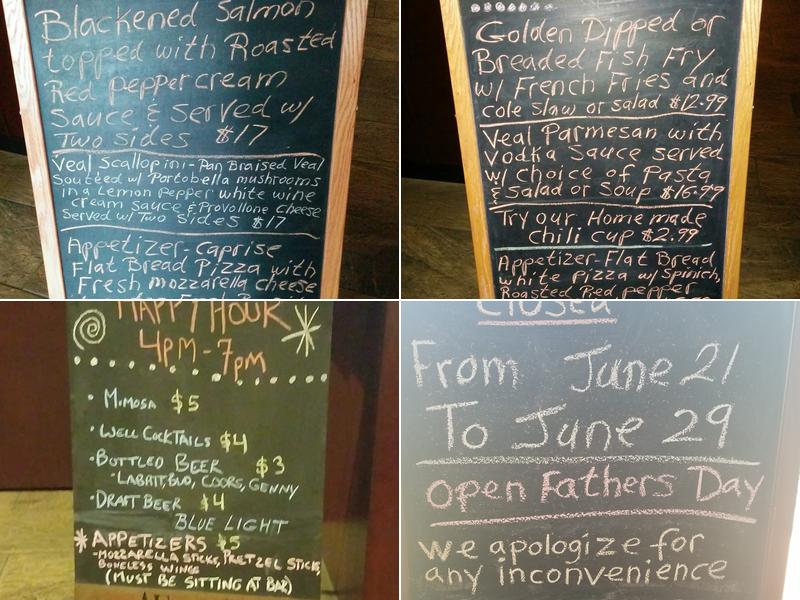 Blackened Salmon
topped with Roasted
Red pepper cream
Sauce & Served w/
Two sides $17
Veal Scallopini - Pan Braised Veal
Soutteed w/ Portobella mushrooms
in a Lemon pepper white wine
cream sauce & Provollone cheese
Served w/ Two sides $17
Appetizer - Caprise
Flat Bread Pizza with
Fresh mozzarella cheese
Golden Dipped or
Breaded Fish Fry
w/ French Fries and
cole slaw or salad $12.99
Veal Parmesan with
Vodka Sauce served
w/ choice of Pasta
& Salad or Soup $16.99
Try our Homemade
chili cup $2.99
Appetizer - Flat Bread
white pizza w/ Spinich,
Roasted Red pepper
HAPPY HOUR
4PM - 7PM
• MIMOSA $5
• WELL COCKTAILS $4
• BOTTLED BEER $3
- LABATT, BUD, COORS, GENNY
• DRAFT BEER $4
BLUE LIGHT
* APPETIZERS $5
- MOZZARELLA STICKS, PRETZEL STICKS,
BONELESS WINGS
(MUST BE SITTING AT BAR)
Closed
From June 21
To June 29
open Fathers Day
we apologize for
any inconvenience